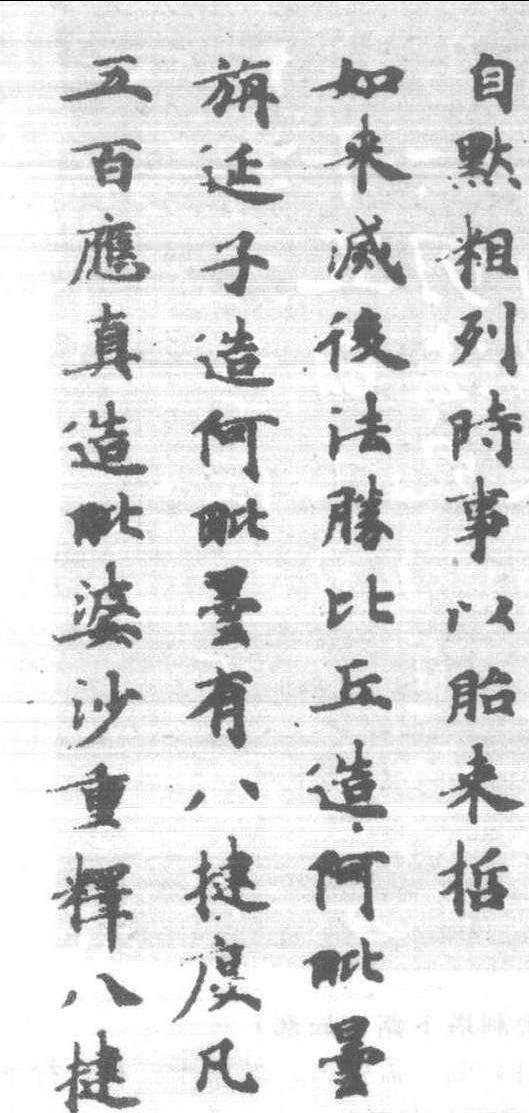 自默粗列時事以貽来哲
如来滅後法勝比丘造阿毗曇
旃延子造阿毗曇有八揵度凡
五百應真造毗婆沙重釋八揵